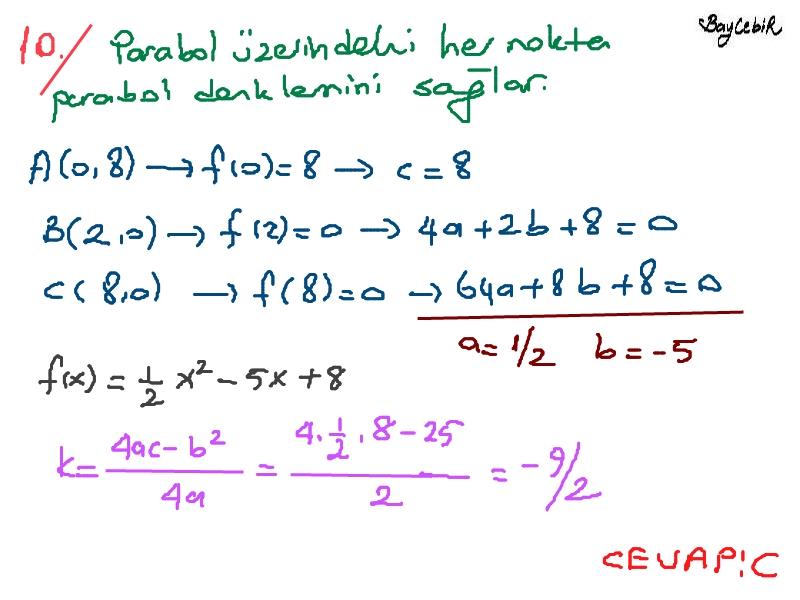 BayCebiR
10. Parabol üzerindeki her nokta
parabol denklemini sağlar.
A(0,8) → f(0)=8 → c=8
B(2,0) → f(2)=0 → 4a+2b+8=0
C(8,0) → f(8)=0 → 64a+8b+8=0
a=1/2 b=-5
f(x) = 1/2 x² - 5x + 8
k = (4ac-b²)/(4a) = (4.1/2.8-25)/2 = -9/2
CEVAP:C